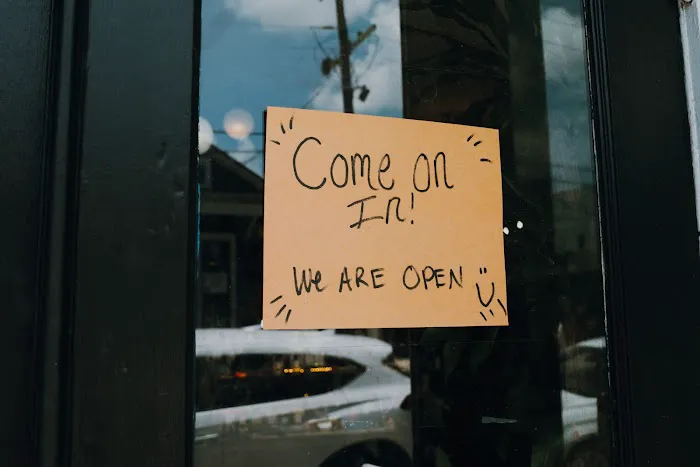 Come on
In!
We ARE OPEN